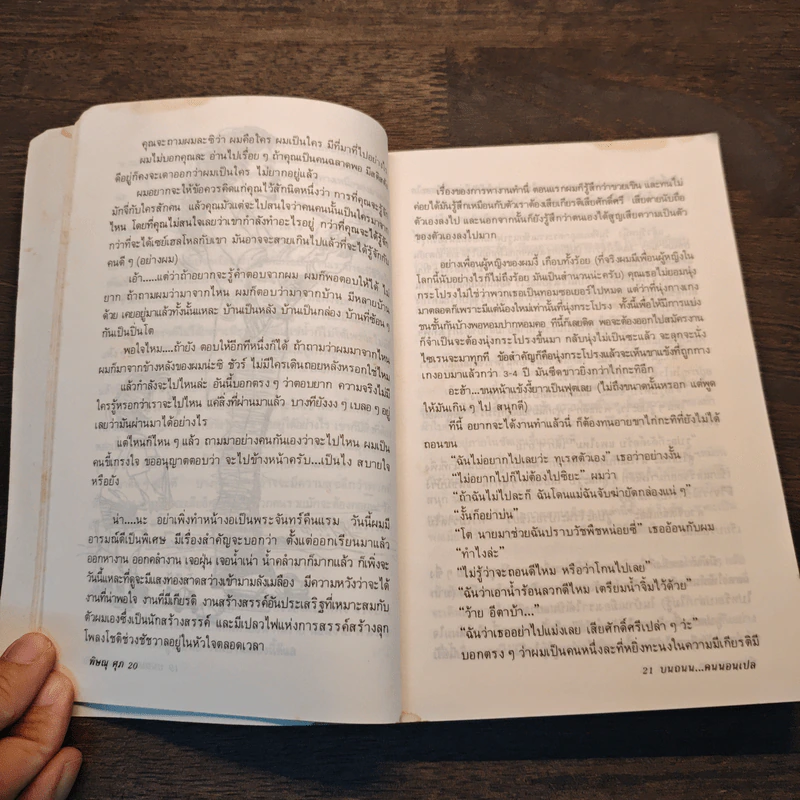 คุณจะถามผมละซิว่า ผมคือใคร ผมเป็นใคร มีที่มาที่ไปอย่างไร
ผมไม่บอกคุณละ อ่านไปเรื่อย ๆ ถ้าคุณเป็นคนฉลาดพอ มี
ดีอยู่ก็คงจะเดาออกว่าผมเป็นใคร ไม่ยากอยู่แล้ว
ผมอยากจะให้ข้อควรคิดแก่คุณไว้สักนิดหนึ่งว่า การที่คุณจะรู้จัก
มักจี่กับใครสักคน แล้วคุณมัวแต่จะไปสนใจว่าคนคนนั้นเป็นใครมาจาก
ไหน โดยที่คุณไม่สนใจเลยว่าเขากำลังทำอะไรอยู่ กว่าที่คุณจะได้รู้จัก
กว่าที่จะได้เซย์เฮลโหลกับเขา มันอาจจะสายเกินไปแล้วที่จะได้รู้จักกับ
คนดี ๆ (อย่างผม)
เอ้า....แต่ว่าถ้าอยากจะรู้คำตอบจากผม ผมก็พอตอบให้ได้ ไม่
ยาก ถ้าถามผมว่ามาจากไหน ผมก็ตอบว่ามาจากบ้าน มีหลายบ้าน
ด้วย เคยอยู่มาแล้วทั้งนั้นแหละ บ้านเป็นหลัง บ้านเป็นกล่อง บ้านที่ซ้อน ๆ
กันเป็นปิ่นโต
พอใจไหม....ถ้ายัง ตอบให้อีกทีหนึ่งก็ได้ ถ้าถามว่าผมมาจากไหน
ผมก็มาจากข้างหลังของผมน่ะซิ ชัวร์ ไม่มีใครเดินถอยหลังหรอกใช่ไหม
แล้วกำลังจะไปไหนล่ะ อันนี้บอกตรง ๆ ว่าตอบยาก ความจริงไม่มี
ใครรู้หรอกว่าเราจะไปไหน แค่สิ่งที่ผ่านมาแล้ว บางทียังงง ๆ เบลอ ๆ อยู่
เลยว่ามันผ่านมาได้อย่างไร
แต่ไหนก็ไหน ๆ แล้ว ถามมาอย่างคนกันเองว่าจะไปไหน ผมเป็น
คนขี้เกรงใจ ขออนุญาตตอบว่า จะไปข้างหน้าครับ...เป็นไง สบายใจ
หรือยัง
น่า....นะ อย่าเพิ่งทำหน้างอเป็นพระจันทร์คืนแรม วันนี้ผมมี
อารมณ์ดีเป็นพิเศษ มีเรื่องสำคัญจะบอกว่า ตั้งแต่ออกเรียนมาแล้ว
ออกหางาน ออกคลำงาน เจอฝุ่น เจอน้ำเน่า น้ำคลำมาก็มากแล้ว ก็เพิ่งจะ
วันนี้แหละที่ดูจะมีแสงทองสาดสว่างเข้ามามลังเมลือง มีความหวังว่าจะได้
งานที่น่าพอใจ งานที่มีเกียรติ งานสร้างสรรค์อันประเสริฐที่เหมาะสมกับ
ตัวผมเองซึ่งเป็นนักสร้างสรรค์ และมีเปลวไฟแห่งการสรรค์สร้างลุก
โพลงโชติช่วงชัชวาลอยู่ในหัวใจตลอดเวลา
พิษณุ ศุภ 20
เรื่องของการหางานทำนี่ ตอนแรกผมก็รู้สึกว่าขวยเขิน และทนไม่
ค่อยได้มันรู้สึกเหมือนกับตัวเราต้องเสียเกียรติเสียศักดิ์ศรี เสียดายนับถือ
ตัวเองลงไป และนอกจากนั้นก็ยังรู้สึกว่าตนเองได้สูญเสียความเป็นตัว
ของตัวเองลงไปมาก
อย่างเพื่อนผู้หญิงของผมงี้ เกือบทั้งร้อย (ที่จริงผมมีเพื่อนผู้หญิงใน
โลกนี้นับอย่างไรก็ไม่ถึงร้อย มันเป็นสำนวนน่ะครับ) คุณเธอไม่ยอมนุ่ง
กระโปรงไม่ใช่ว่าพวกเธอเป็นทอมซอเยอร์ไปหมด แต่ว่าที่นุ่งกางเกง
มาตลอดก็เพราะมีแต่น้องใหม่เท่านั้นที่นุ่งกระโปรง ทั้งนี้เพื่อให้มีการแบ่ง
ชนชั้นกันบ้างพอหอมปากหอมคอ ทีนี้ก็เลยติด พอจะต้องออกไปสมัครงาน
ก็จำเป็นจะต้องนุ่งกระโปรงขึ้นมา กลับนุ่งไม่เป็นซะแล้ว จะลุกจะนั่ง
ไซเรนจะมาทุกที ข้อสำคัญก็คือนุ่งกระโปรงแล้วจะเห็นขาแข้งที่ถูกกาง
เกงอบมาแล้วกว่า 3-4 ปี มันซีดขาวยิ่งกว่าไก่กะทิอีก
อะฮ้า...ขนหน้าแข้งงี้ยาวเป็นฟุตเลย (ไม่ถึงขนาดนั้นหรอก แต่พูด
ให้มันเกิน ๆ ไป สนุกดี)
ทีนี้ อยากจะได้งานทำแล้วนี่ ก็ต้องทนอายขาไก่กะทิที่ยังไม่ได้
ถอนขน
“ฉันไม่อยากไปเลยว่ะ ทุเรศตัวเอง” เธอว่าอย่างงั้น
“ไม่อยากไปก็ไม่ต้องไปซิยะ” ผมว่า
“ถ้าฉันไม่ไปละก็ ฉันโดนแม่ฉันจับฆ่ายัดกล่องแน่ ๆ”
“งั้นก็อย่าบ่น”
“โต นายมาช่วยฉันปราบวัชพืชหน่อยซี่” เธออ้อนกับผม
“ทำไงล่ะ”
“ไม่รู้ว่าจะถอนดีไหม หรือว่าโกนไปเลย”
“ฉันว่าเอาน้ำร้อนลวกดีไหม เตรียมน้ำจิ้มไว้ด้วย”
“ว้าย อีตาบ้า...”
“ฉันว่าเธออย่าไปแม่งเลย เสียศักดิ์ศรีเปล่า ๆ ว่ะ”
บอกตรง ๆ ว่าผมเป็นคนหนึ่งละที่หยิ่งทะนงในความมีเกียรติมี
21 บนถนน...คนนอนเปล